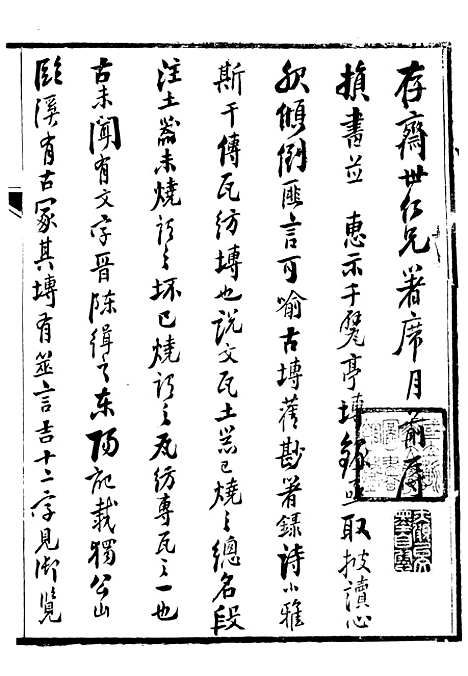 存齋世仁兄著席月前辱
損書並 惠示千甓亭塼錄亟取披讀心
欽傾倒匪言可喻古塼舊尟著錄詩小雅
斯干傳瓦紡塼也說文瓦土器已燒之總名段
注土器未燒謂之坏已燒謂之瓦紡專瓦之一也
古未聞有文字晉陳緝之東陽記載獨公山
臨溪有古冢其塼有筮言吉十二字見御覽